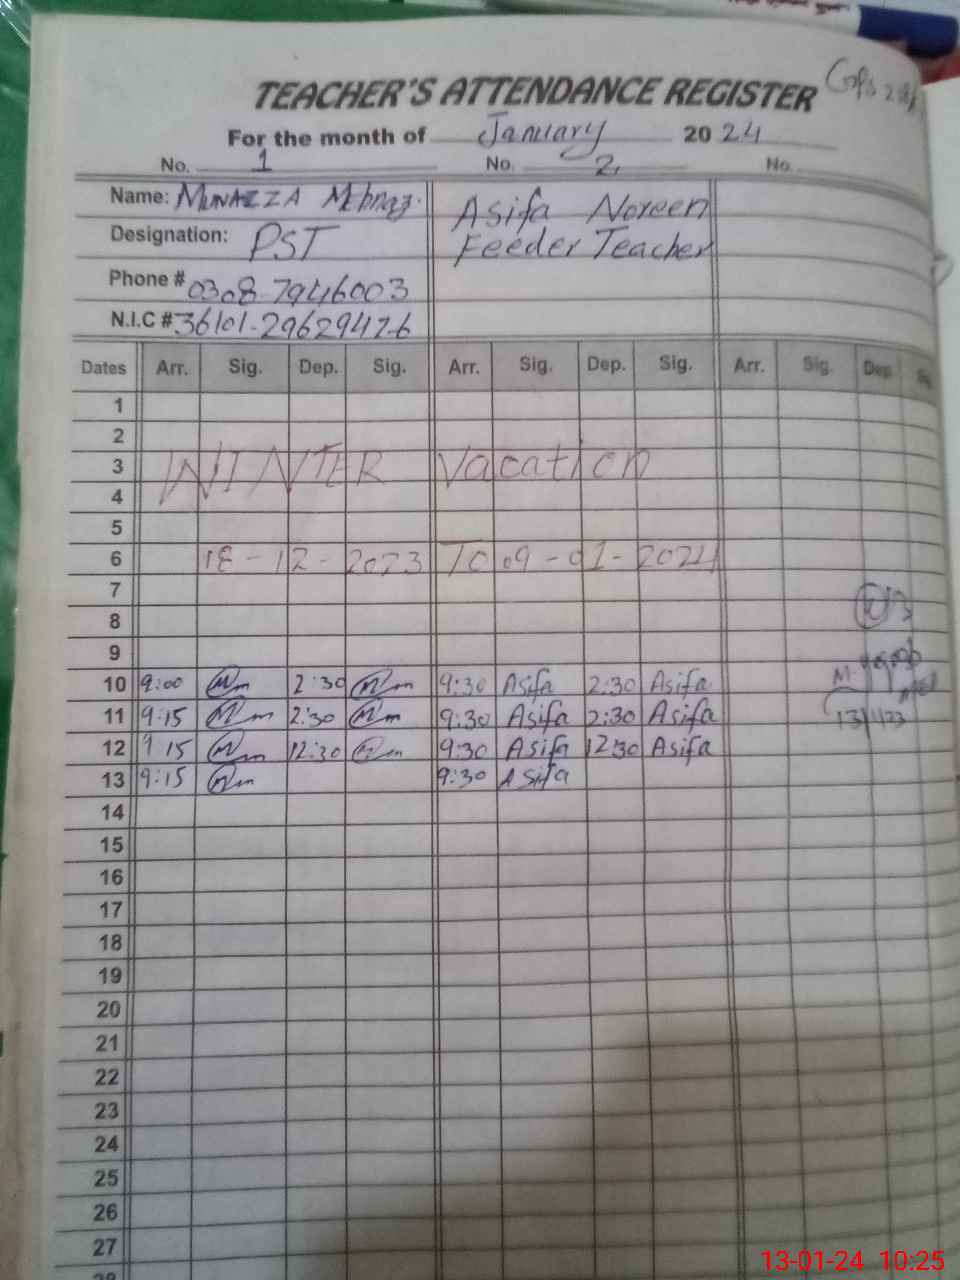 TEACHER'S ATTENDANCE REGISTER
For the month of January 2024
No. 1 No. 2, No.
Name: MUNAZZA Mehnaz. Asifa Noreen
Designation: PST Feeder Teacher
Phone # 0308-7946003
N.I.C #
Dates Arr. Sig. Dep. Sig. Arr. Sig. Dep. Sig. Arr. Sig. Dep
1
2
3 WINTER Vacation
4
5
6 18-12-2023 To 09-01-2024
7
8
9
10 9:00 2:30 9:30 Asifa 2:30 Asifa
11 9:15 2:30 9:30 Asifa 2:30 Asifa
12 9:15 12:30 9:30 Asifa 12:30 Asifa
13 9:15 9:30 Asifa
14
15
16
17
18
19
20
21
22
23
24
25
26
27
28
13-01-24 10:25